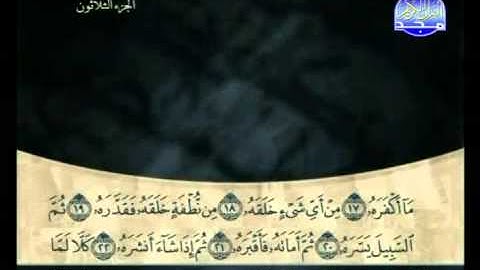 الجزء الثلاثون
مجد
مَا أَكْفَرَهُۥ ١٧ مِنْ أَيِّ شَىْءٍ خَلَقَهُۥ ١٨ مِن نُّطْفَةٍ خَلَقَهُۥ فَقَدَّرَهُۥ ١٩ ثُمَّ
ٱلسَّبِيلَ يَسَّرَهُۥ ٢٠ ثُمَّ أَمَاتَهُۥ فَأَقْبَرَهُۥ ٢١ ثُمَّ إِذَا شَآءَ أَنشَرَهُۥ ٢٢ كَلَّا لَمَّا